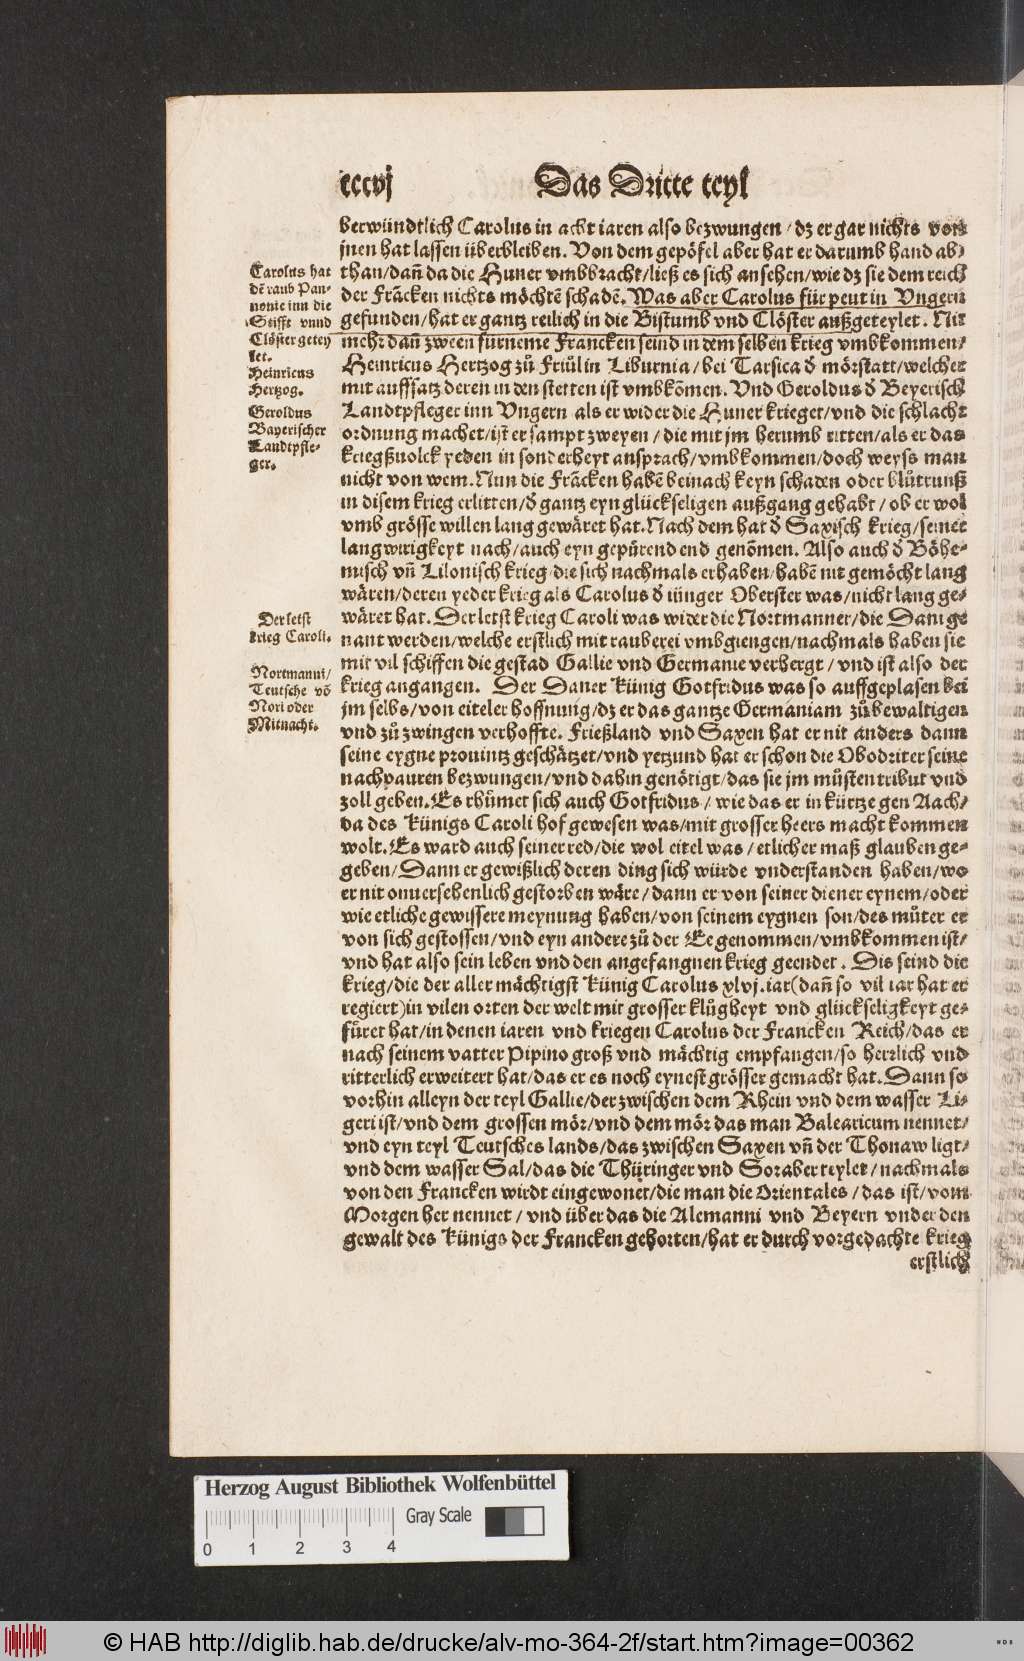 cccvj
Das Dritte teyl
berwündtlich Carolus in acht iaren also bezwungen / dz er gar nichts von
jnen hat lassen überbleiben. Von dem gepöfel aber hat er darumb hand ab⸗
than/dañ da die Huner vmbbracht/ließ es sich ansehen/wie dz sie dem reich
der Frãcken nichts möchtẽ schadẽ. Was aber Carolus für peut in Vngern
gefunden/hat er gantz reilich in die Bistumb vnd Clöster außgeteylet. Nit
mehr dañ zween fürneme Francken seind in dem selben krieg vmbkommen/
Heinricus Hertzog zů Friůl in Liburnia/bei Tarsica d̕ mörstatt/welcher
mit auffsatz deren in den stetten ist vmbkõmen. Vnd Geroldus d̕ Beyerisch
Landtpfleger inn Vngern als er wider die Huner krieget/vnd die schlacht
ordnung machet/ist er sampt zweyen / die mit jm herumb ritten/als er das
kriegßuolck yeden in sonderheyt ansprach/vmbkommen/doch weyss man
nicht von wem. Nun die Frãcken habẽ beinach keyn schaden oder blůtrunß
in disem krieg erlitten/d̕ gantz eyn glückseligen außgang gehabt / ob er wol
vmb grösse willen lang gewäret hat. Nach dem hat d̕ Saxisch krieg/seiner
langwirigkeyt nach/auch eyn gepürend end genõmen. Also auch d̕ Böhe⸗
misch vñ Lilonisch krieg/die sich nachmals erhaben/habẽ nit gemöcht lang
wären/deren yeder krieg als Carolus d̕ jünger Oberster was/nicht lang ge⸗
wäret hat. Der letst krieg Caroli was wider die Nortmanner/die Dani ge
nant werden/welche erstlich mit rauberei vmbgiengen/nachmals haben sie
mit vil schiffen die gestad Gallie vnd Germanie verhergt / vnd ist also der
krieg angangen. Der Daner Künig Gotfridus was so auffgeplasen bei
jm selbs/von eiteler hoffnung/dz er das gantze Germaniam zůbewaltigen
vnd zů zwingen verhoffte. Frießland vnd Saxen hat er nit anders dann
seine eygne prouintz geschätzet/vnd yetzund hat er schon die Obodriter seine
nachpauren bezwungen/vnd dahin genötigt/das sie jm můsten tribut vnd
zoll geben. Es rhůmet sich auch Gotfridus / wie das er in kürtze gen Aach/
da des Künigs Caroli hof gewesen was/mit grosser heers macht kommen
wolt. Es ward auch seiner red/die wol eitel was / etlicher maß glauben ge⸗
geben/Dann er gewißlich deren ding sich würde vnderstanden haben/wo
er nit onuersehenlich gestorben wäre / dann er von seiner diener eynem/oder
wie etliche gewissere meynung haben/von seinem eygnen son/des můter er
von sich gestossen/vnd eyn andere zů der Ee genommen/vmbkommen ist/
vnd hat also sein leben vnd den angefangnen krieg geendet. Dis seind die
krieg/die der aller mächtigst Künig Carolus xlvj. iar(dañ so vil iar hat er
regiert)in vilen orten der welt mit grosser klůgheyt vnd glückseligkeyt ge⸗
fůret hat/in denen iaren vnd kriegen Carolus der Francken Reich/das er
nach seinem vatter Pipino groß vnd mächtig empfangen/so herrlich vnd
ritterlich erweitert hat/das er es noch eynest grösser gemacht hat. Dann so
vorhin alleyn der teyl Gallie/der zwischen dem Rhein vnd dem wasser Li⸗
geri ist/vnd dem grossen mör/vnd dem mör das man Balearicum nennet/
vnd eyn teyl Teutsches lands/das zwischen Saxen vñ der Thonaw ligt/
vnd dem wasser Sal/das die Thüringer vnd Soraber teylet / nachmals
von den Francken wirdt eingewonet/die man die Orientales / das ist/vom
Morgen her nennet / vnd über das die Alemanni vnd Beyern vnder den
gewalt des Künigs der Francken gehorten/hat er durch vorgedachte krieg
erstlich
Carolus hat
dẽ raub Pan⸗
nonie inn die
Stifft vnnd
Clöster getey
let.
Heinricus
Hertzog.
Geroldus
Bayerischer
Landtpfle⸗
ger.
Der letst
krieg Caroli.
Nortmanni/
Teutsche võ
Nori oder
Mitnacht.
Herzog August Bibliothek Wolfenbüttel
Gray Scale
0 1 2 3 4
© HAB http://diglib.hab.de/drucke/alv-mo-364-2f/start.htm?image=00362